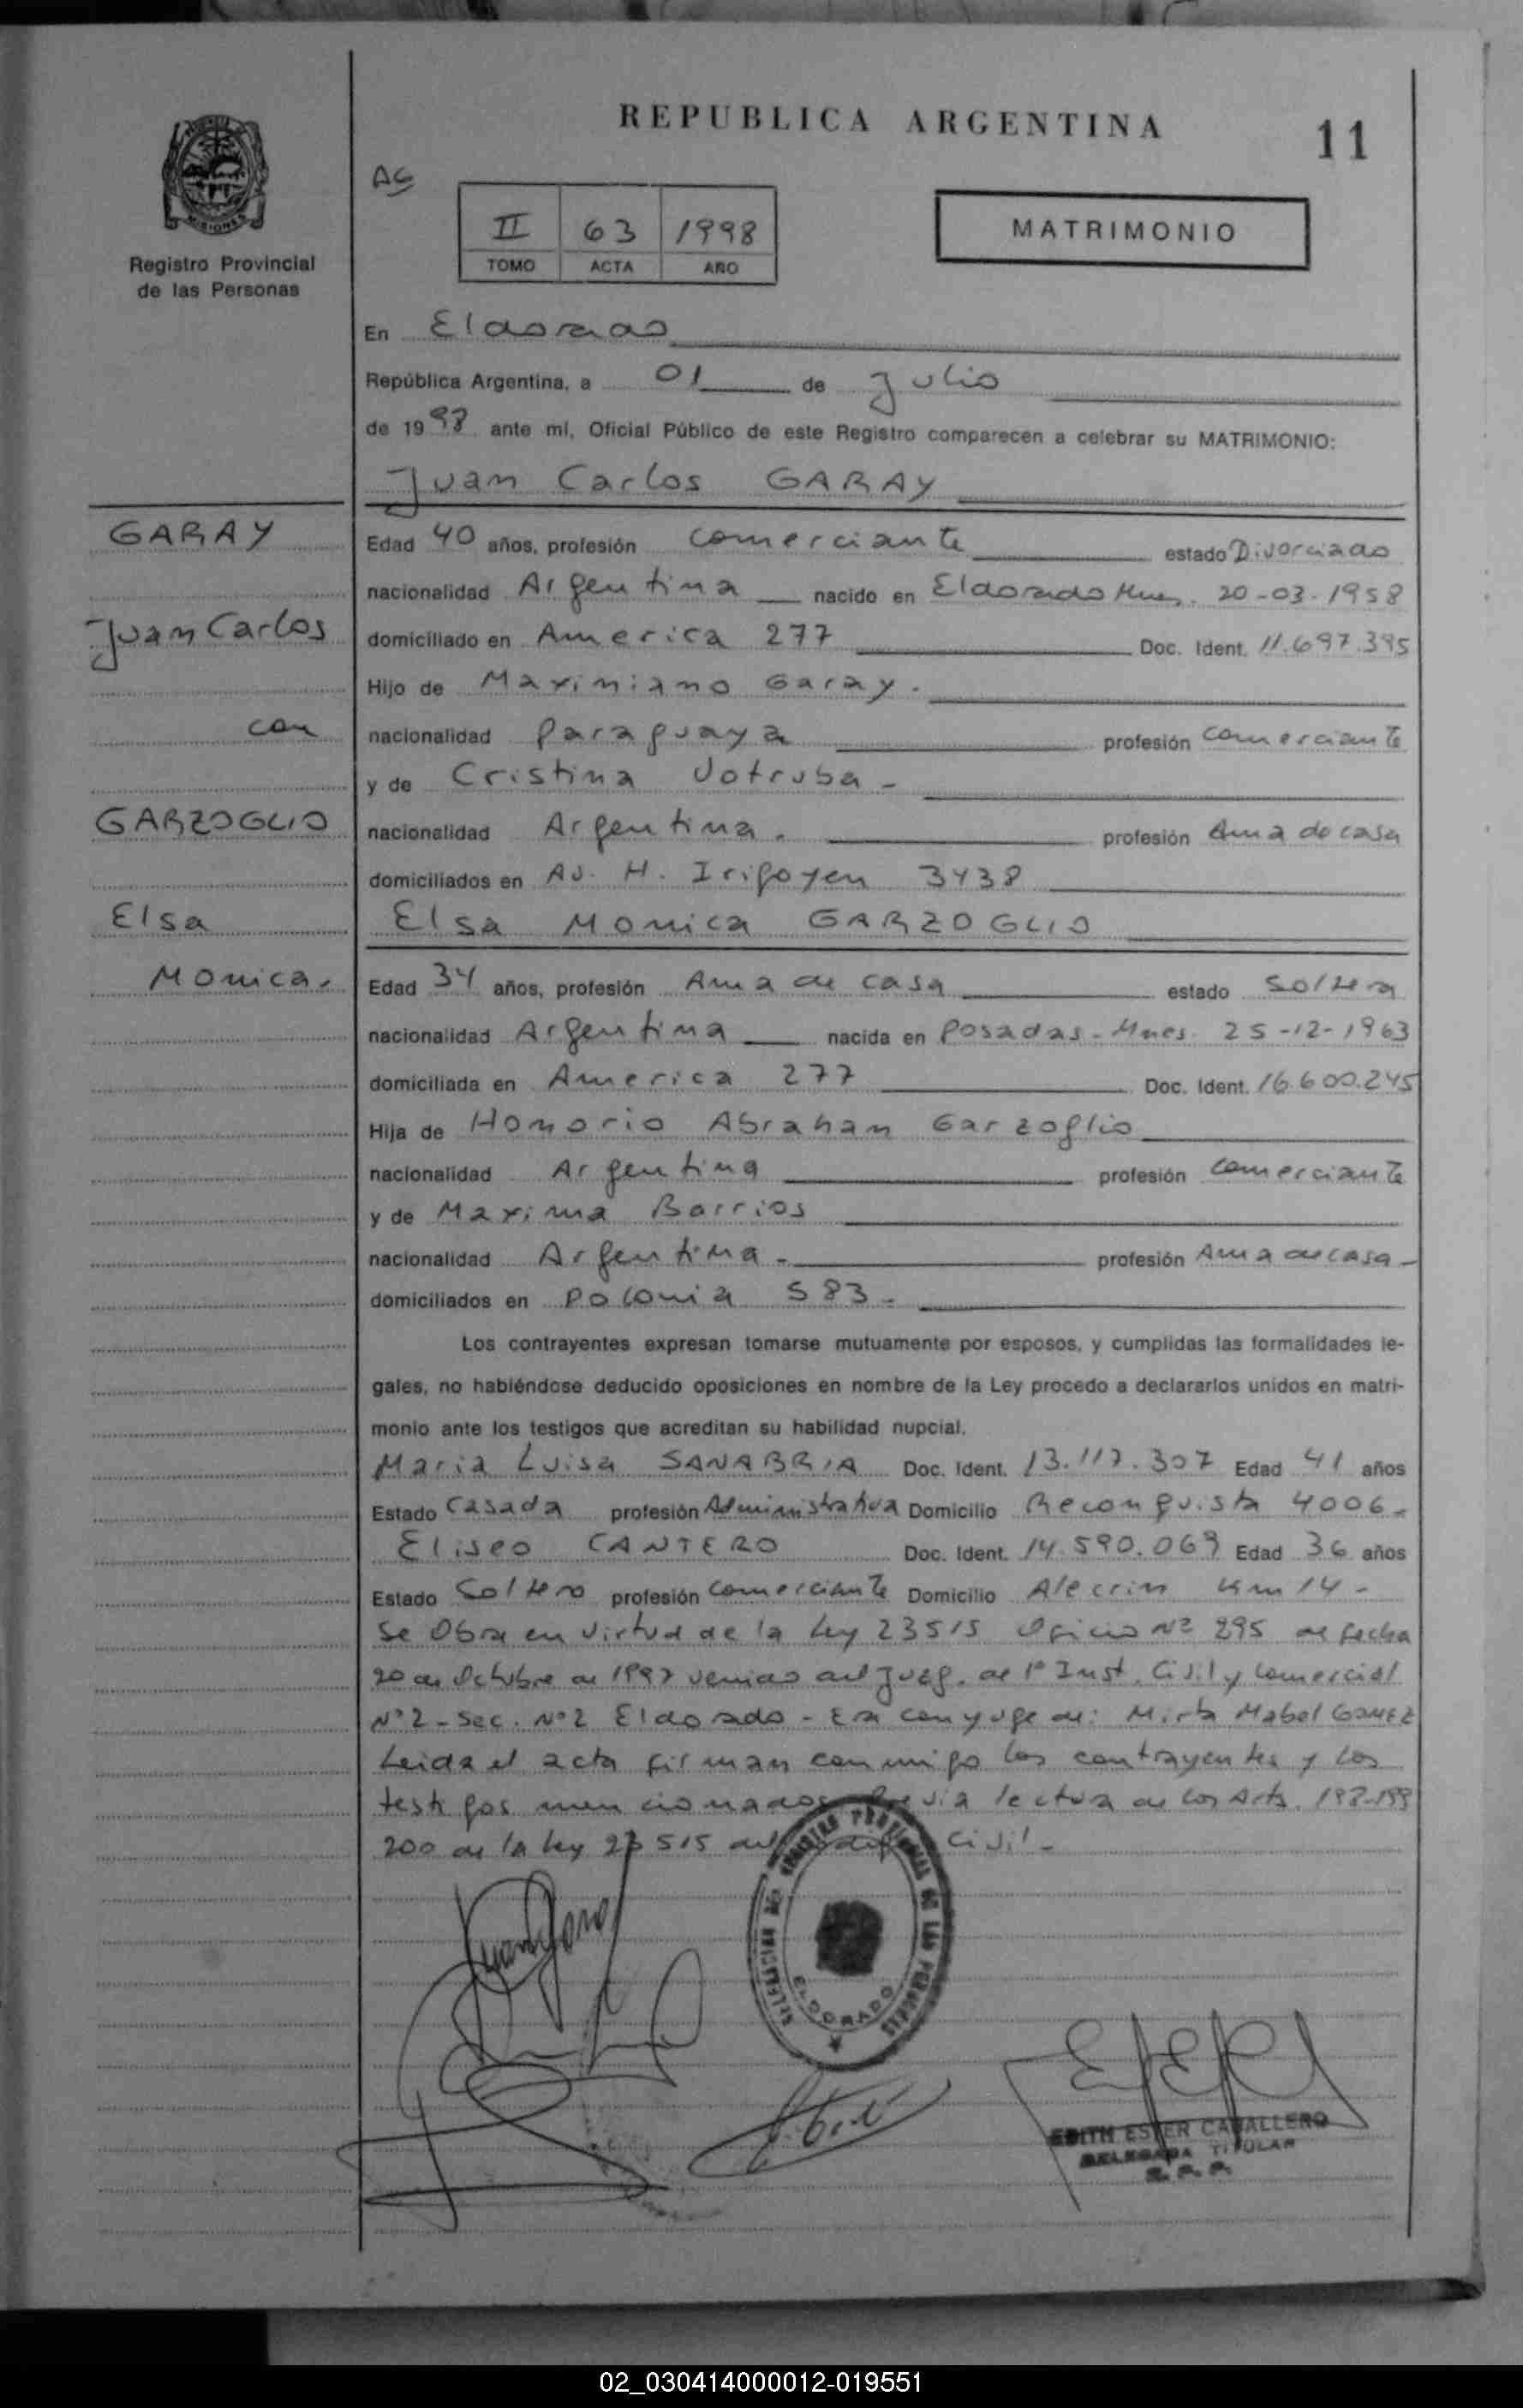 REPUBLICA ARGENTINA
11
MISIONES
Registro Provincial
de las Personas
AG
II 63 1998
TOMO ACTA AÑO
MATRIMONIO
En Eldorado
República Argentina, a 01 de Julio
de 1998 ante mí, Oficial Público de este Registro comparecen a celebrar su MATRIMONIO:
Juan Carlos GARAY
GARAY
Juan Carlos
con
GARZOGLIO
Elsa
Monica.
Edad 40 años, profesión comerciante estado Divorciado
nacionalidad Argentina nacido en Eldorado Mnes. 20-03-1958
domiciliado en America 277 Doc. Ident. 11.697.395
Hijo de Maximiano Garay.
nacionalidad Paraguaya profesión comerciante
y de Cristina Votruba -
nacionalidad Argentina. profesión Ama de casa
domiciliados en Av. H. Irigoyen 3438
Elsa Monica GARZOGLIO
Edad 34 años, profesión Ama de casa estado soltera
nacionalidad Argentina nacida en Posadas - Mnes. 25-12-1963
domiciliada en America 277 Doc. Ident. 16.600.245
Hija de Honorio Abraham Garzoglio
nacionalidad Argentina profesión comerciante
y de Maxima Barrios
nacionalidad Argentina - profesión Ama de casa -
domiciliados en Polonia 583 -
Los contrayentes expresan tomarse mutuamente por esposos, y cumplidas las formalidades le-
gales, no habiéndose deducido oposiciones en nombre de la Ley procedo a declararlos unidos en matri-
monio ante los testigos que acreditan su habilidad nupcial.
Maria Luisa SANABRIA Doc. Ident. 13.117.307 Edad 41 años
Estado Casada profesión Administrativa Domicilio Reconquista 4006 -
Eliseo CANTERO Doc. Ident. 14.590.069 Edad 36 años
Estado Soltero profesión comerciante Domicilio Alecrin Km 14 -
Se Obra en virtud de la Ley 23515 Oficio Nº 295 de fecha
20 de Octubre de 1997 venido del Juzg. de 1ª Inst. Civil y Comercial
Nº 2 - Sec. Nº 2 Eldorado - Era conyuge de: Mirta Mabel GOMEZ
Leida el acta firman conmigo los contrayentes y los
testigos mencionados Previa lectura de los Arts. 198-199
200 de la Ley 23515 del Civil -
DELEGACION DEL REGISTRO PROVINCIAL DE LAS PERSONAS
ELDORADO
EDITH ESTER CABALLERO
DELEGADA TITULAR
R. P. P.
02_030414000012-019551